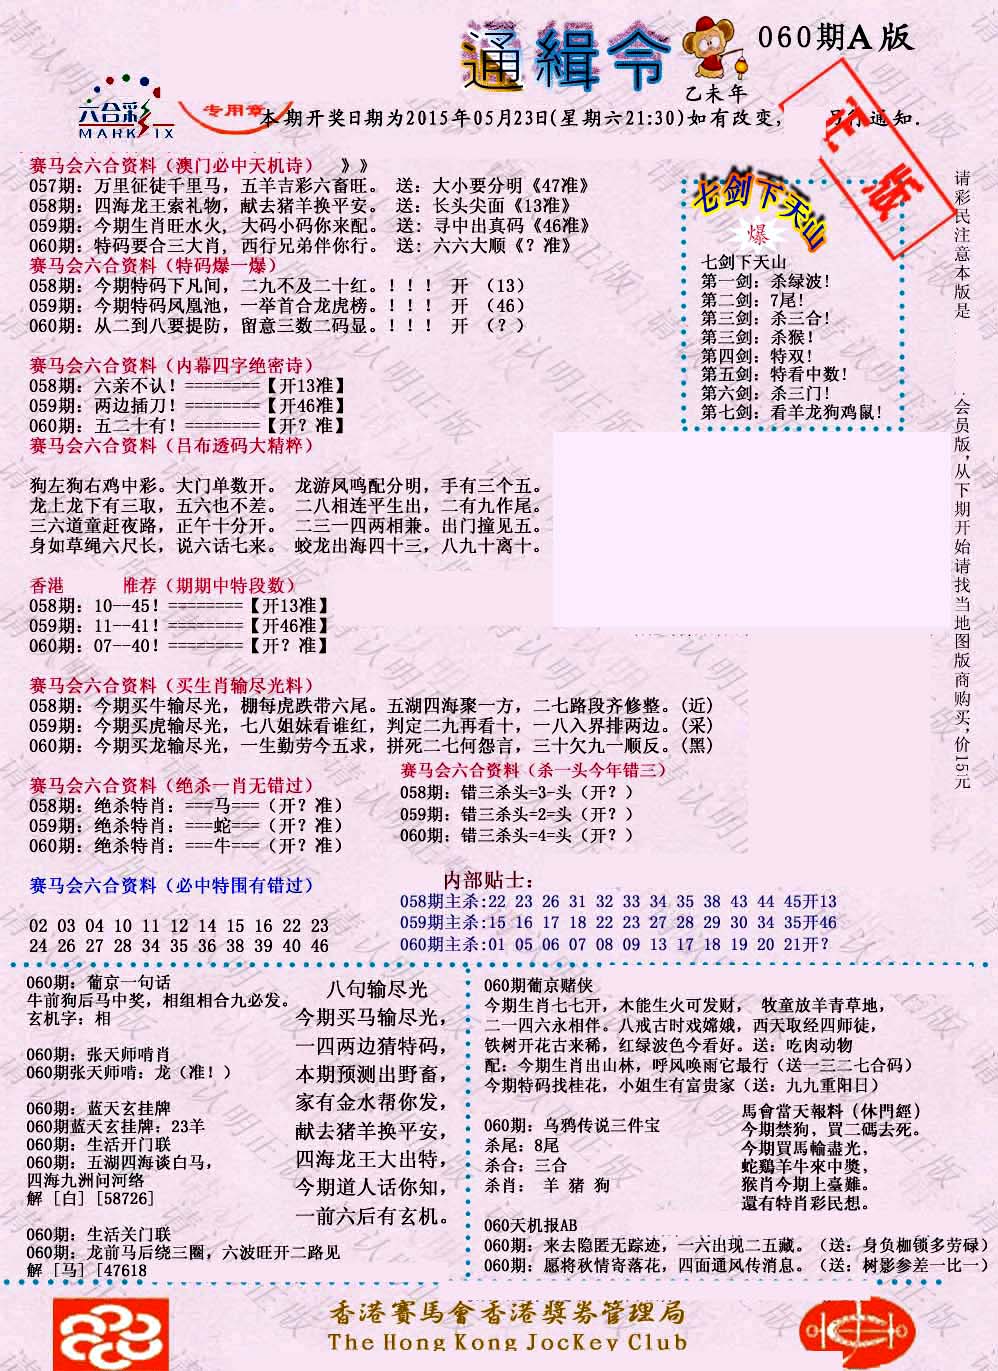 通緝令
060期A版
乙未年
六合彩
MARK SIX
专用章
正版
本期开奖日期为2015年05月23日(星期六21:30)如有改变, 另行通知.
赛马会六合资料（澳门必中天机诗） 》》
057期: 万里征徒千里马，五羊吉彩六畜旺。 送: 大小要分明《47准》
058期: 四海龙王索礼物，献去猪羊换平安。 送: 长头尖面《13准》
059期: 今期生肖旺水火, 大码小码你来配。 送: 寻中出真码《46准》
060期: 特码要合三大肖, 西行兄弟伴你行。 送: 六六大顺《? 准》
赛马会六合资料（特码爆一爆）
058期: 今期特码下凡间，二九不及二十红。! ! ! 开 （13）
059期: 今期特码凤凰池，一举首合龙虎榜。! ! ! 开 （46）
060期: 从二到八要提防，留意三数二码显。! ! ! 开 （? ）
赛马会六合资料（内幕四字绝密诗）
058期: 六亲不认! ========【开13准】
059期: 两边插刀! ========【开46准】
060期: 五二十有! ========【开? 准】
赛马会六合资料（吕布透码大精粹）
狗左狗右鸡中彩。大门单数开。 龙游凤鸣配分明，手有三个五。
龙上龙下有三取，五六也不差。 二八相连平生出，二有九作尾。
三六道童赶夜路，正午十分开。 二三一四两相兼。出门撞见五。
身如草绳六尺长，说六话七来。 蛟龙出海四十三，八九十离十。
七剑下天山
爆
七剑下天山
第一剑: 杀绿波!
第二剑: 7尾!
第三剑: 杀三合!
第三剑: 杀猴!
第四剑: 特双!
第五剑: 特看中数!
第六剑: 杀三门!
第七剑: 看羊龙狗鸡鼠!
请彩民注意本版是
.会员版,从下期开始请找当地图版商购买;价15元
香港 推荐（期期中特段数）
058期: 10--45! ========【开13准】
059期: 11--41! ========【开46准】
060期: 07--40! ========【开? 准】
赛马会六合资料（买生肖输尽光料）
058期: 今期买牛输尽光，棚每虎跌带六尾。五湖四海聚一方，二七路段齐修整。(近)
059期: 今期买虎输尽光，七八姐妹看谁红，判定二九再看十，一八入界排两边。(采)
060期: 今期买龙输尽光，一生勤劳今五求，拼死二七何怨言，三十欠九一顺反。(黑)
赛马会六合资料（绝杀一肖无错过）
058期: 绝杀特肖: ===马===（开? 准）
059期: 绝杀特肖: ===蛇===（开? 准）
060期: 绝杀特肖: ===牛===（开? 准）
赛马会六合资料（杀一头今年错三）
058期: 错三杀头=3-头（开? ）
059期: 错三杀头=2=头（开? ）
060期: 错三杀头=4=头（开? ）
赛马会六合资料（必中特围有错过）
02 03 04 10 11 12 14 15 16 22 23
24 26 27 28 34 35 36 38 39 40 46
内部贴士:
058期主杀:22 23 26 31 32 33 34 35 38 43 44 45开13
059期主杀:15 16 17 18 22 23 27 28 29 30 34 35开46
060期主杀:01 05 06 07 08 09 13 17 18 19 20 21开?
060期: 葡京一句话
牛前狗后马中奖，相组相合九必发。
玄机字: 相
060期: 张天师啃肖
060期张天师啃: 龙（准! ）
060期: 蓝天玄挂牌
060期蓝天玄挂牌: 23羊
060期: 生活开门联
060期: 五湖四海谈白马，
四海九洲问河络
解 [白] [58726]
060期: 生活关门联
060期: 龙前马后绕三圈，六波旺开二路见
解 [马] [47618
八句输尽光
今期买马输尽光，
一四两边猜特码，
本期预测出野畜，
家有金水帮你发，
献去猪羊换平安，
四海龙王大出特，
今期道人话你知，
一前六后有玄机。
060期葡京赌侠
今期生肖七七开，木能生火可发财， 牧童放羊青草地，
二一四六永相伴。八戒古时戏嫦娥，西天取经四师徒，
铁树开花古来稀，红绿波色今看好。送: 吃肉动物
配: 今期生肖出山林，呼风唤雨它最行（送一三二七合码）
今期特码找桂花，小姐生有富贵家（送: 九九重阳日）
060期: 乌鸦传说三件宝
杀尾: 8尾
杀合: 三合
杀肖: 羊 猪 狗
馬會當天報料（休門經）
今期禁狗，買二碼去死。
今期買馬輸盡光，
蛇鷄羊牛來中獎，
猴肖今期上臺難。
還有特肖彩民想。
060天机报AB
060期: 来去隐匿无踪迹，一六出现二五藏。（送: 身负枷锁多劳碌）
060期: 愿将秋情寄落花，四面通风传消息。（送: 树影参差一比一）
香港賽馬會香港獎券管理局
The Hong Kong Jockey Club